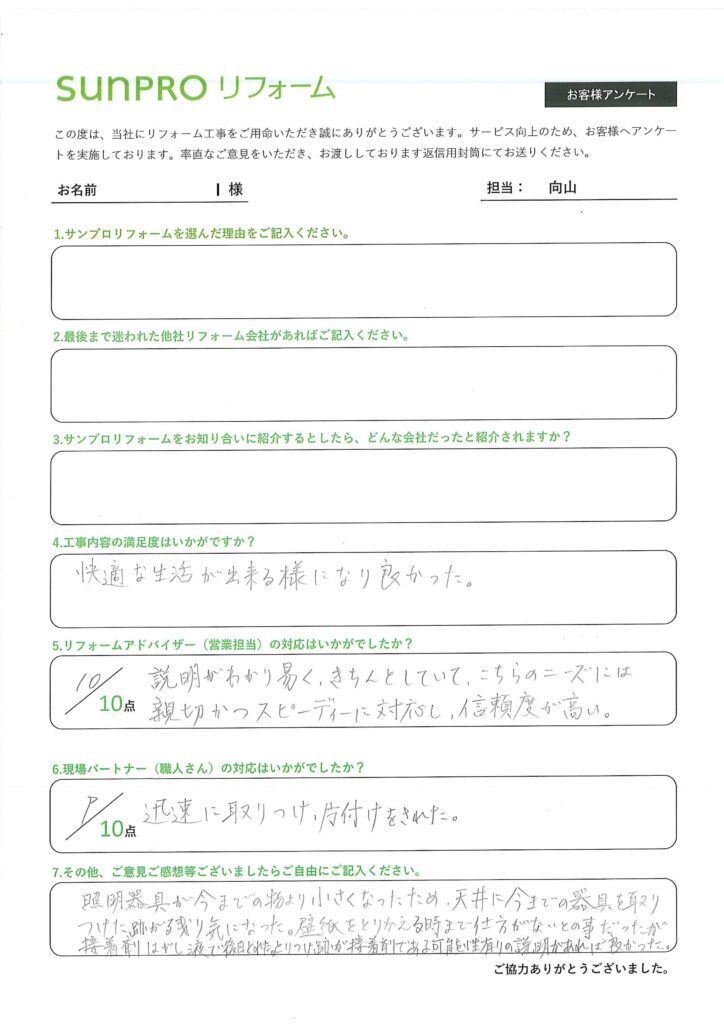 sunPRO リフォーム
お客様アンケート
この度は、当社にリフォーム工事をご用命いただき誠にありがとうございます。サービス向上のため、お客様へアンケー
トを実施しております。率直なご意見をいただき、お渡ししております返信用封筒にてお送りください。
お名前 I 様 担当： 向山
1.サンプロリフォームを選んだ理由をご記入ください。
2.最後まで迷われた他社リフォーム会社があればご記入ください。
3.サンプロリフォームをお知り合いに紹介するとしたら、どんな会社だったと紹介されますか？
4.工事内容の満足度はいかがですか？
快適な生活が出来る様になり良かった。
5.リフォームアドバイザー（営業担当）の対応はいかがでしたか？
10/10点 説明がわかり易く、きちんとしていて、こちらのニーズには
親切かつスピーディーに対応し、信頼度が高い。
6.現場パートナー（職人さん）の対応はいかがでしたか？
/10点 迅速に取りつけ、片付けをされた。
7.その他、ご意見ご感想等ございましたらご自由にご記入ください。
照明器具が今までの物より小さくなったため、天井に今までの器具を取り
つけた跡が残り気になった。壁紙をとりかえる時まで仕方がないとの事だったが
接着剤はがし液で とれたよりつけ跡が接着剤である可能性有りの説明があれば良かった。
ご協力ありがとうございました。